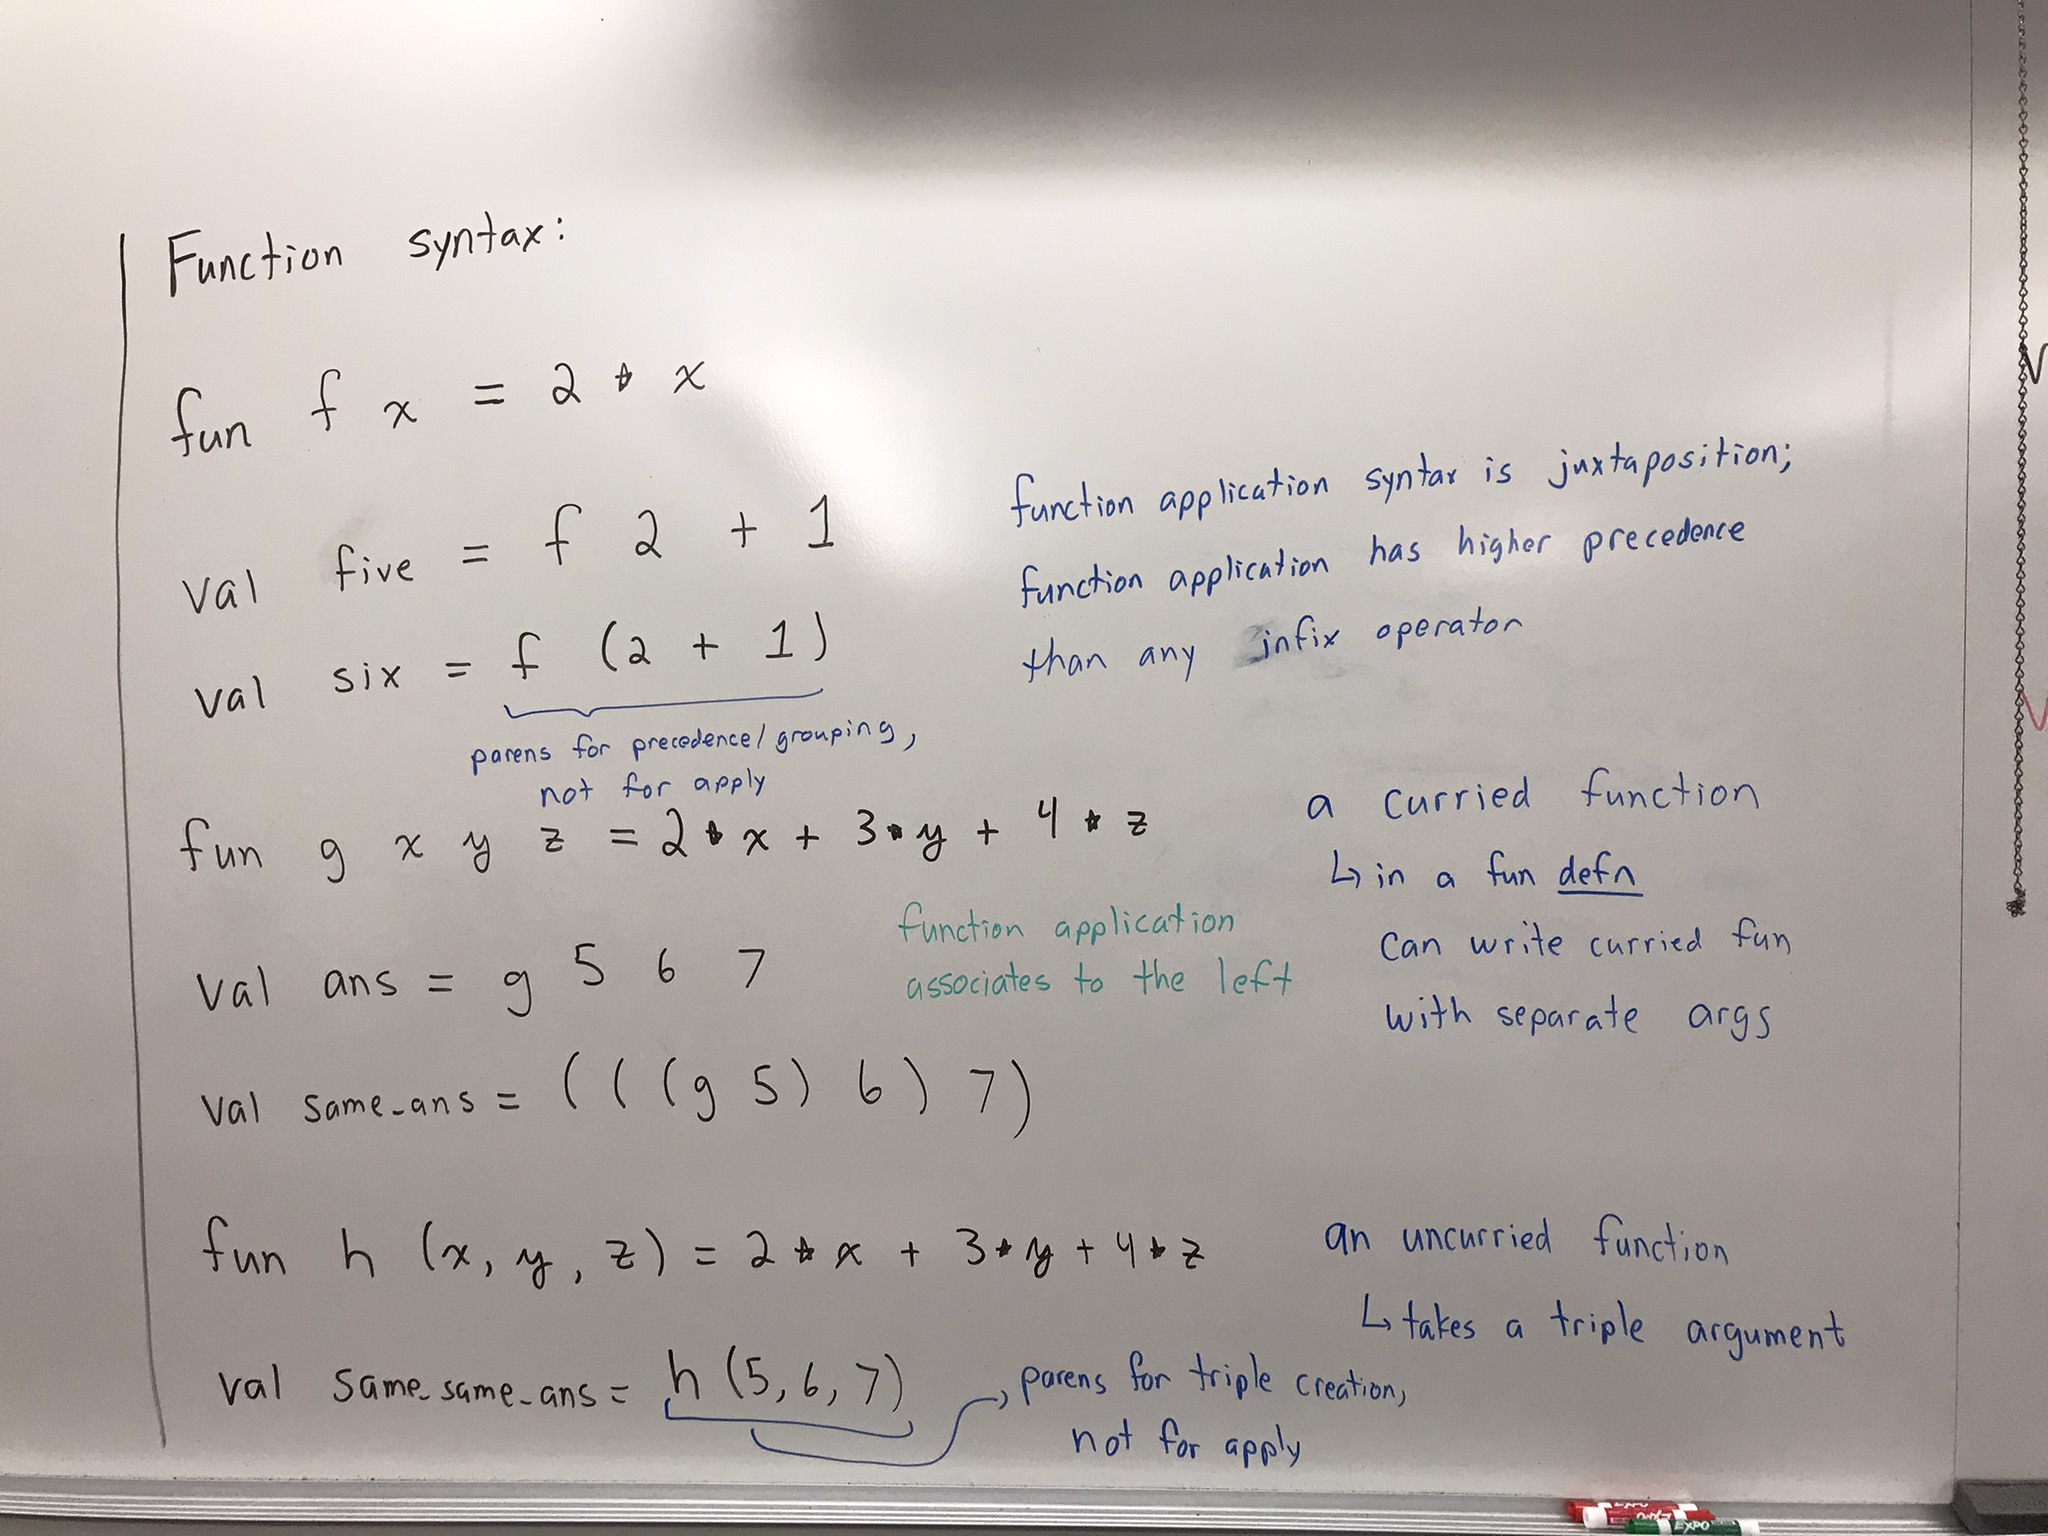 Function syntax:
fun f x = 2 * x
val five = f 2 + 1
function application syntax is juxtaposition;
function application has higher precedence
than any infix operator
val six = f (2 + 1)
parens for precedence/grouping,
not for apply
fun g x y z = 2 * x + 3 * y + 4 * z
a curried function
↳ in a fun defn
can write curried fun
with separate args
val ans = g 5 6 7
function application
associates to the left
val same_ans = (((g 5) 6) 7)
fun h (x, y, z) = 2 * x + 3 * y + 4 * z
an uncurried function
↳ takes a triple argument
val same_same_ans = h (5, 6, 7)
parens for triple creation,
not for apply
EXPO
EXPO